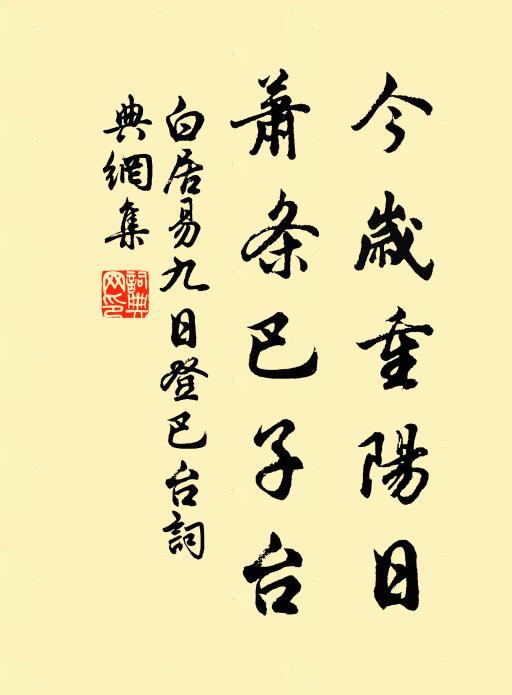 今歲重陽日
蕭条巴子台
白居易九日登巴台詞
典網集
詞典網印